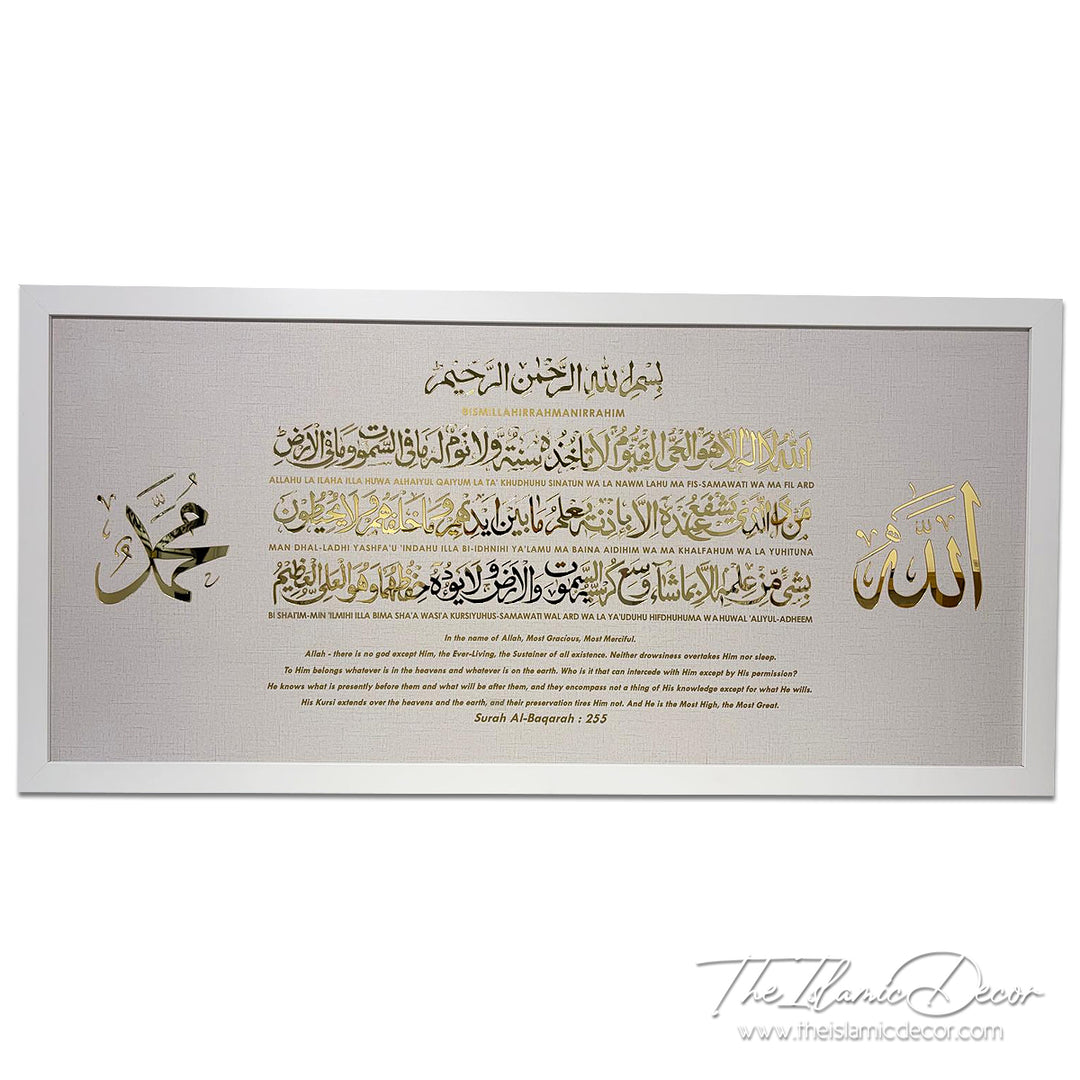 بِسْمِ اللهِ الرَّحْمٰنِ الرَّحِيْمِ
BISMILLAHIRRAHMANIRRAHIM
اَللهُ لَا اِلٰهَ اِلَّا هُوَ الْحَىُّ الْقَيُّوْمُ لَا تَاْخُذُهٗ سِنَةٌ وَّلَا نَوْمٌ لَهٗ مَا فِى السَّمٰوٰتِ وَمَا فِى الْاَرْضِ
ALLAHU LA ILAHA ILLA HUWA ALHAIYUL QAIYUM LA TA' KHUDHUHU SINATUN WA LA NAWM LAHU MA FIS-SAMAWATI WA MA FIL ARD
مَنْ ذَا الَّذِىْ يَشْفَعُ عِنْدَهٗ اِلَّا بِاِذْنِهٖ يَعْلَمُ مَا بَيْنَ اَيْدِيْهِمْ وَمَا خَلْفَهُمْ وَلَا يُحِيْطُوْنَ
MAN DHAL-LADHI YASHFA'U 'INDAHU ILLA BI-IDHNIHI YA'LAMU MA BAINA AIDIHIM WA MA KHALFAHUM WA LA YUHITUNA
بِشَىْءٍ مِّنْ عِلْمِهٖ اِلَّا بِمَا شَآءَ وَسِعَ كُرْسِيُّهُ السَّمٰوٰتِ وَالْاَرْضَ وَلَا يَؤُدُهٗ حِفْظُهُمَا وَهُوَ الْعَلِىُّ الْعَظِيْمُ
BI SHAI'IM-MIN 'ILMIHI ILLA BIMA SHA'A WASI'A KURSIYUHUS-SAMAWATI WAL ARD WA LA YA'UDUHU HIFDHUHUMA WA HUWAL 'ALIYUL-ADHEEM
الله
مُحَمَّد
In the name of Allah, Most Gracious, Most Merciful.
Allah - there is no god except Him, the Ever-Living, the Sustainer of all existence. Neither drowsiness overtakes Him nor sleep.
To Him belongs whatever is in the heavens and whatever is on the earth. Who is it that can intercede with Him except by His permission?
He knows what is presently before them and what will be after them, and they encompass not a thing of His knowledge except for what He wills.
His Kursi extends over the heavens and the earth, and their preservation tires Him not. And He is the Most High, the Most Great.
Surah Al-Baqarah : 255
The Islamic Decor
www.theislamicdecor.com